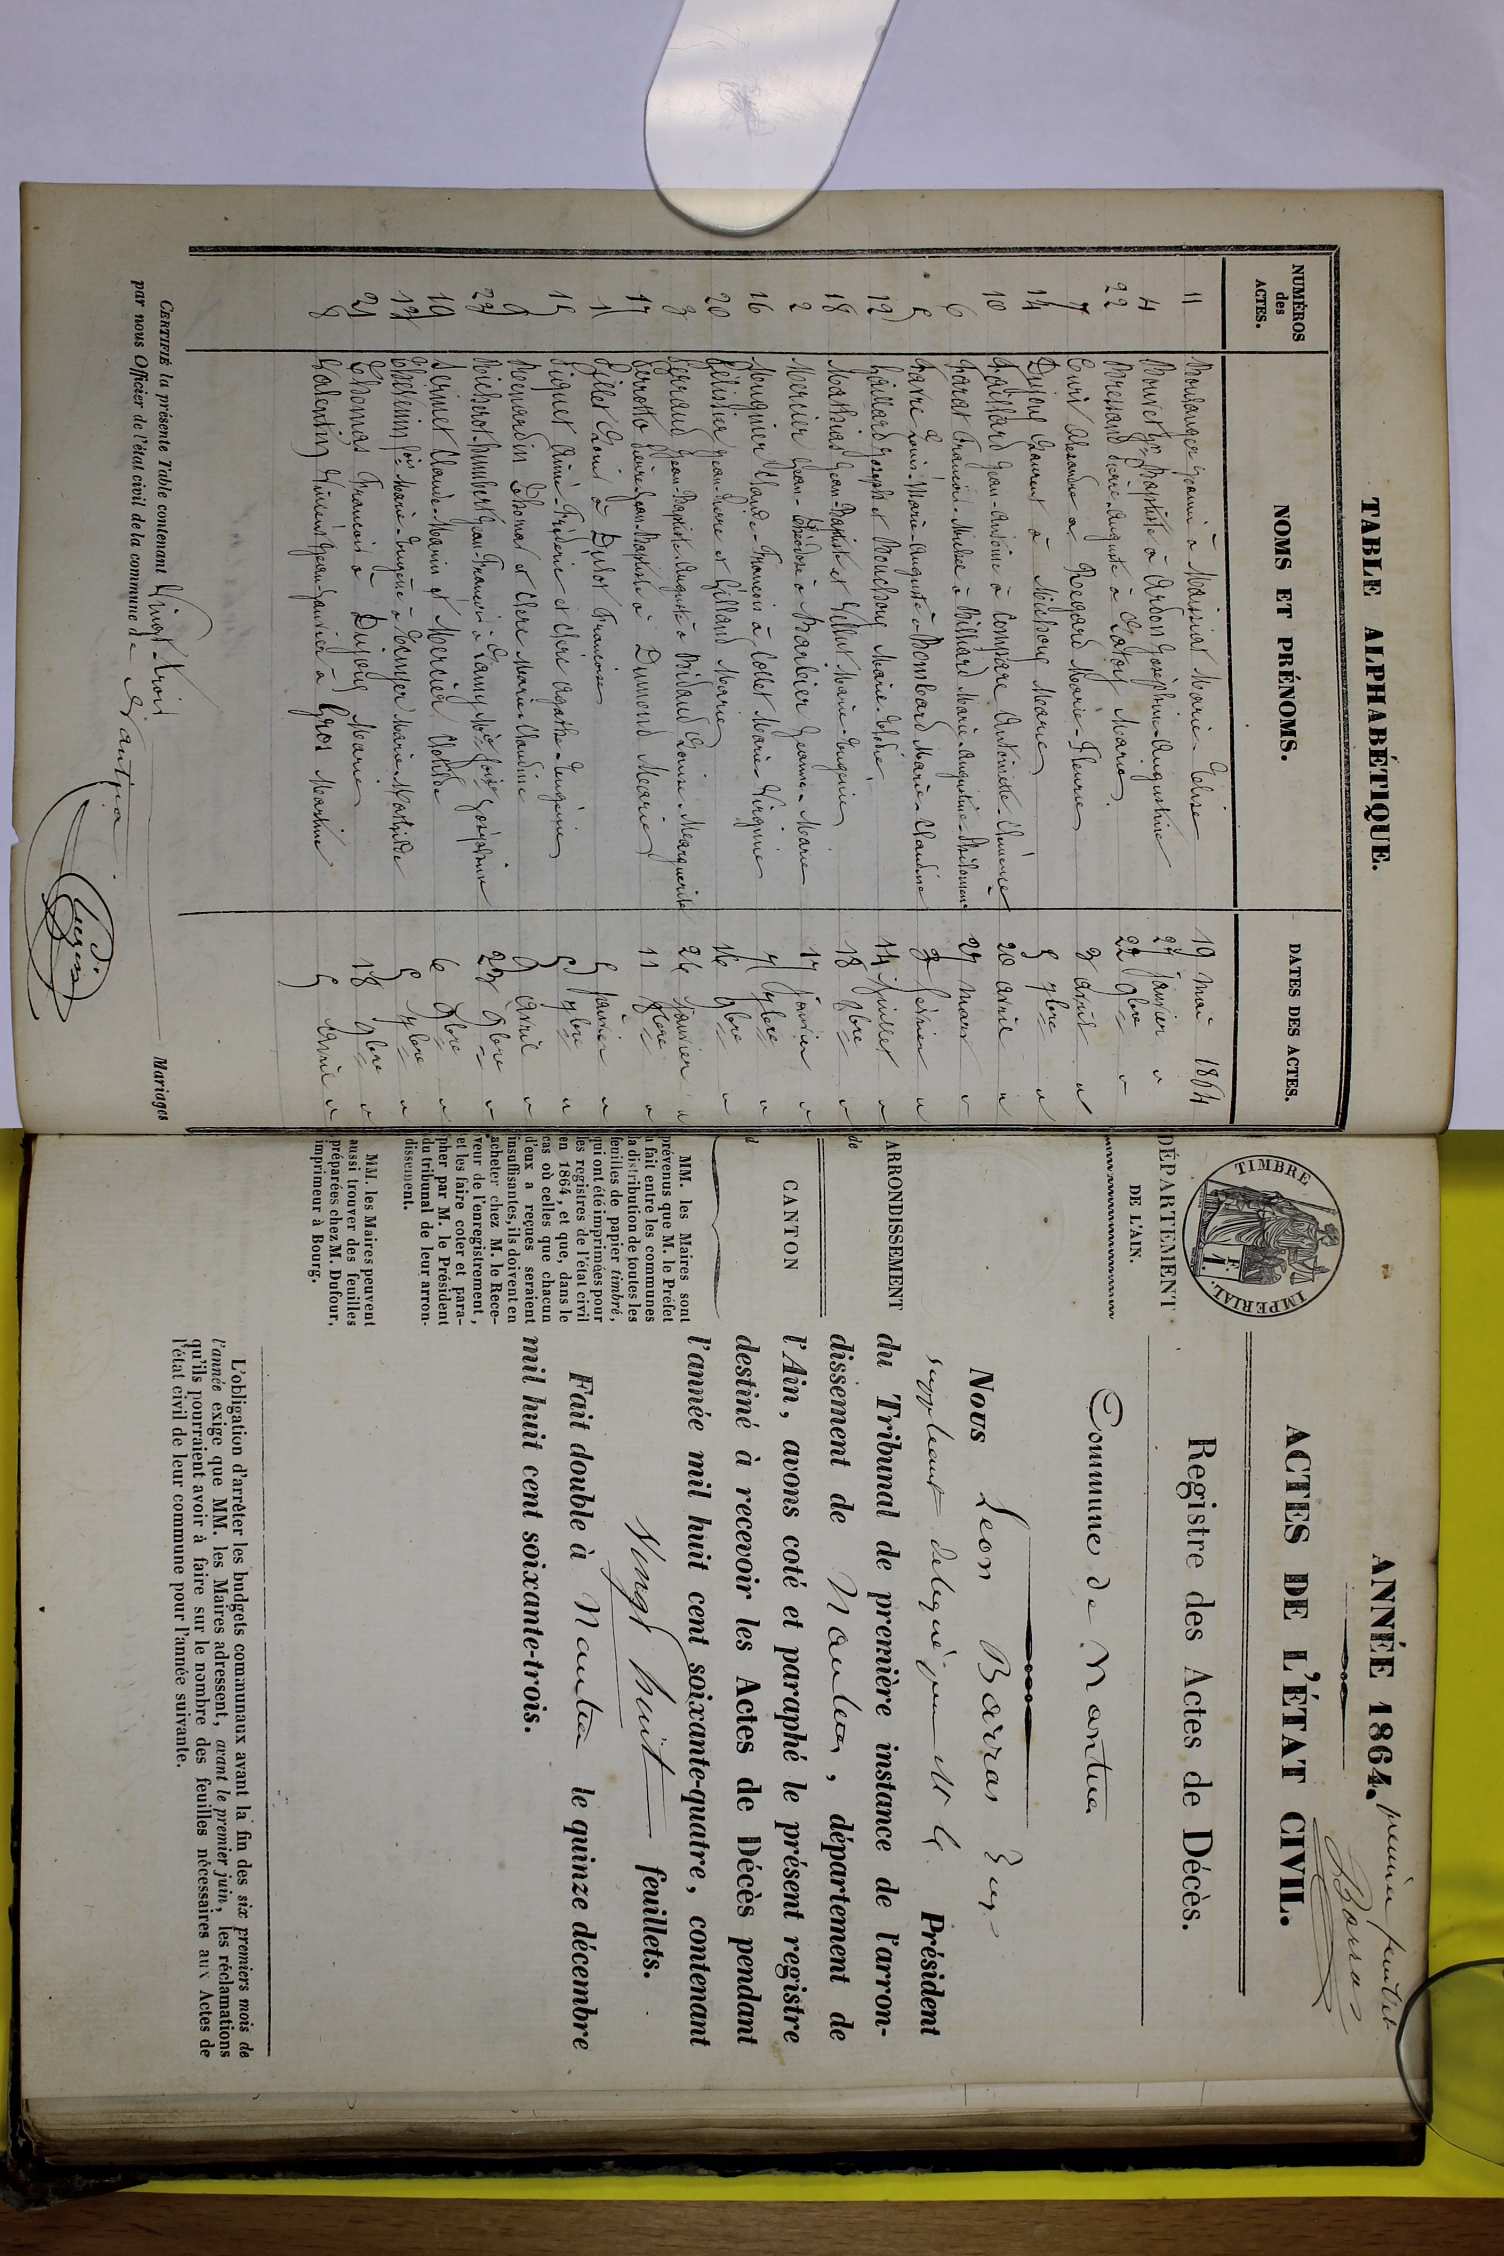 TABLE ALPHABÉTIQUE.
NUMÉROS des ACTES. NOMS ET PRÉNOMS. DATES DES ACTES.
11 Boulanger à Maissiat Marie Elise 19 mai 1864
4 Bouvet Jn Baptiste à Ardon Joséphine-Augustine 27 janvier "
22 Bressand Pierre-Auguste à Marie 22 9bre "
7 Curt Alexandre à Regard Marie-Fleurie 3 avril "
14 Dujoug Laurent à Marie 5 7bre "
10 Gaillard Jean-Antoine à Compare Antoinette-Clémence 20 avril "
6 François-Michel à Billiard Marie-Augustine-Philomène 27 mars "
5 Favre Louis-Marie-Auguste à Bombard Marie-Claudine 3 février "
12 Gaillard Joseph et Bouchoug Marie-Elodie 14 juillet "
18 Mathias Jean-Baptiste et Villet Marie-Eugénie 18 8bre "
2 Mercier Jean-Théodose à Barbier Jeanne-Marie 17 janvier "
16 Mougnier Claude-François à Collet Marie-Virginie 7 7bre "
20 Pélissier Jean-Pierre et Gilland Marie 16 9bre "
3 Perraud Jean-Baptiste-Auguste à Louise-Marguerite 26 janvier "
17 Perrotto Pierre-Jean-Baptiste à Dumond Marie 11 8bre "
1 Pillet Louis à Didot Françoise 5 janvier "
15 Piquet Aimé-Fréderic et Clerc Agathe-Eugénie 5 7bre "
9 Reverdin Thomas et Clerc Marie-Claudine 9 avril "
23 Humbert Jean-François à Lamy Joséphine 23 9bre "
19 Claude-Marie et Mercier Clotilde 6 9bre "
13 Thévenin Marie-Eugène à Marie-Mathilde 5 7bre "
21 Thomas François à Dujoug Marie 18 9bre "
8 Valentin Jean-Xavier à Gros Martine 5 avril "
CERTIFIÉ la présente Table contenant Vingt-trois
par nous Officier de l'état civil de la commune de Nantua
Mariages
TIMBRE IMPÉRIAL
1 F.
DÉPARTEMENT
DE L'AIN.
ARRONDISSEMENT
de
CANTON
d
MM. les Maires sont
prévenus que M. le Préfet
a fait entre les communes
la distribution de toutes les
feuilles de papier timbré,
qui ont été imprimées pour
les registres de l'état civil
en 1864, et que, dans le
cas où celles que chacun
d'eux a reçues seraient
insuffisantes, ils doivent en
acheter chez M. le Rece-
veur de l'enregistrement,
et les faire coter et para-
pher par M. le Président
du tribunal de leur arron-
dissement.
MM. les Maires peuvent
aussi trouver des feuilles
préparées chez M. Dufour,
imprimeur à Bourg.
premier feuillet
Barras
ANNÉE 1864.
ACTES DE L'ÉTAT CIVIL.
Registre des Actes de Décès.
Commune de Nantua
Nous Leon Barras Juge
suppleant delegué par M le Président
du Tribunal de première instance de l'arron-
dissement de Nantua, département de
l'Ain, avons coté et paraphé le présent registre
destiné à recevoir les Actes de Décès pendant
l'année mil huit cent soixante-quatre, contenant
Vingt huit feuillets.
Fait double à Nantua le quinze décembre
mil huit cent soixante-trois.
L'obligation d'arrêter les budgets communaux avant la fin des six premiers mois de
l'année exige que MM. les Maires adressent, avant le premier juin, les réclamations
qu'ils pourraient avoir à faire sur le nombre des feuilles nécessaires aux Actes de
l'état civil de leur commune pour l'année suivante.